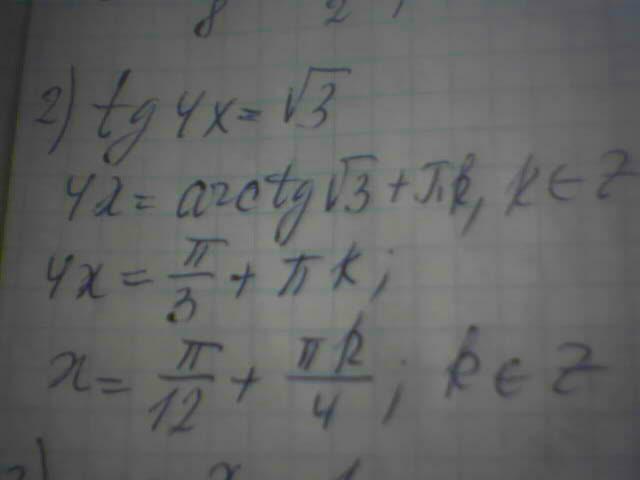 8 2
2) tg 4x = √3
4x = arctg √3 + πk, k ∈ Z
4x = π/3 + πk;
x = π/12 + πk/4; k ∈ Z